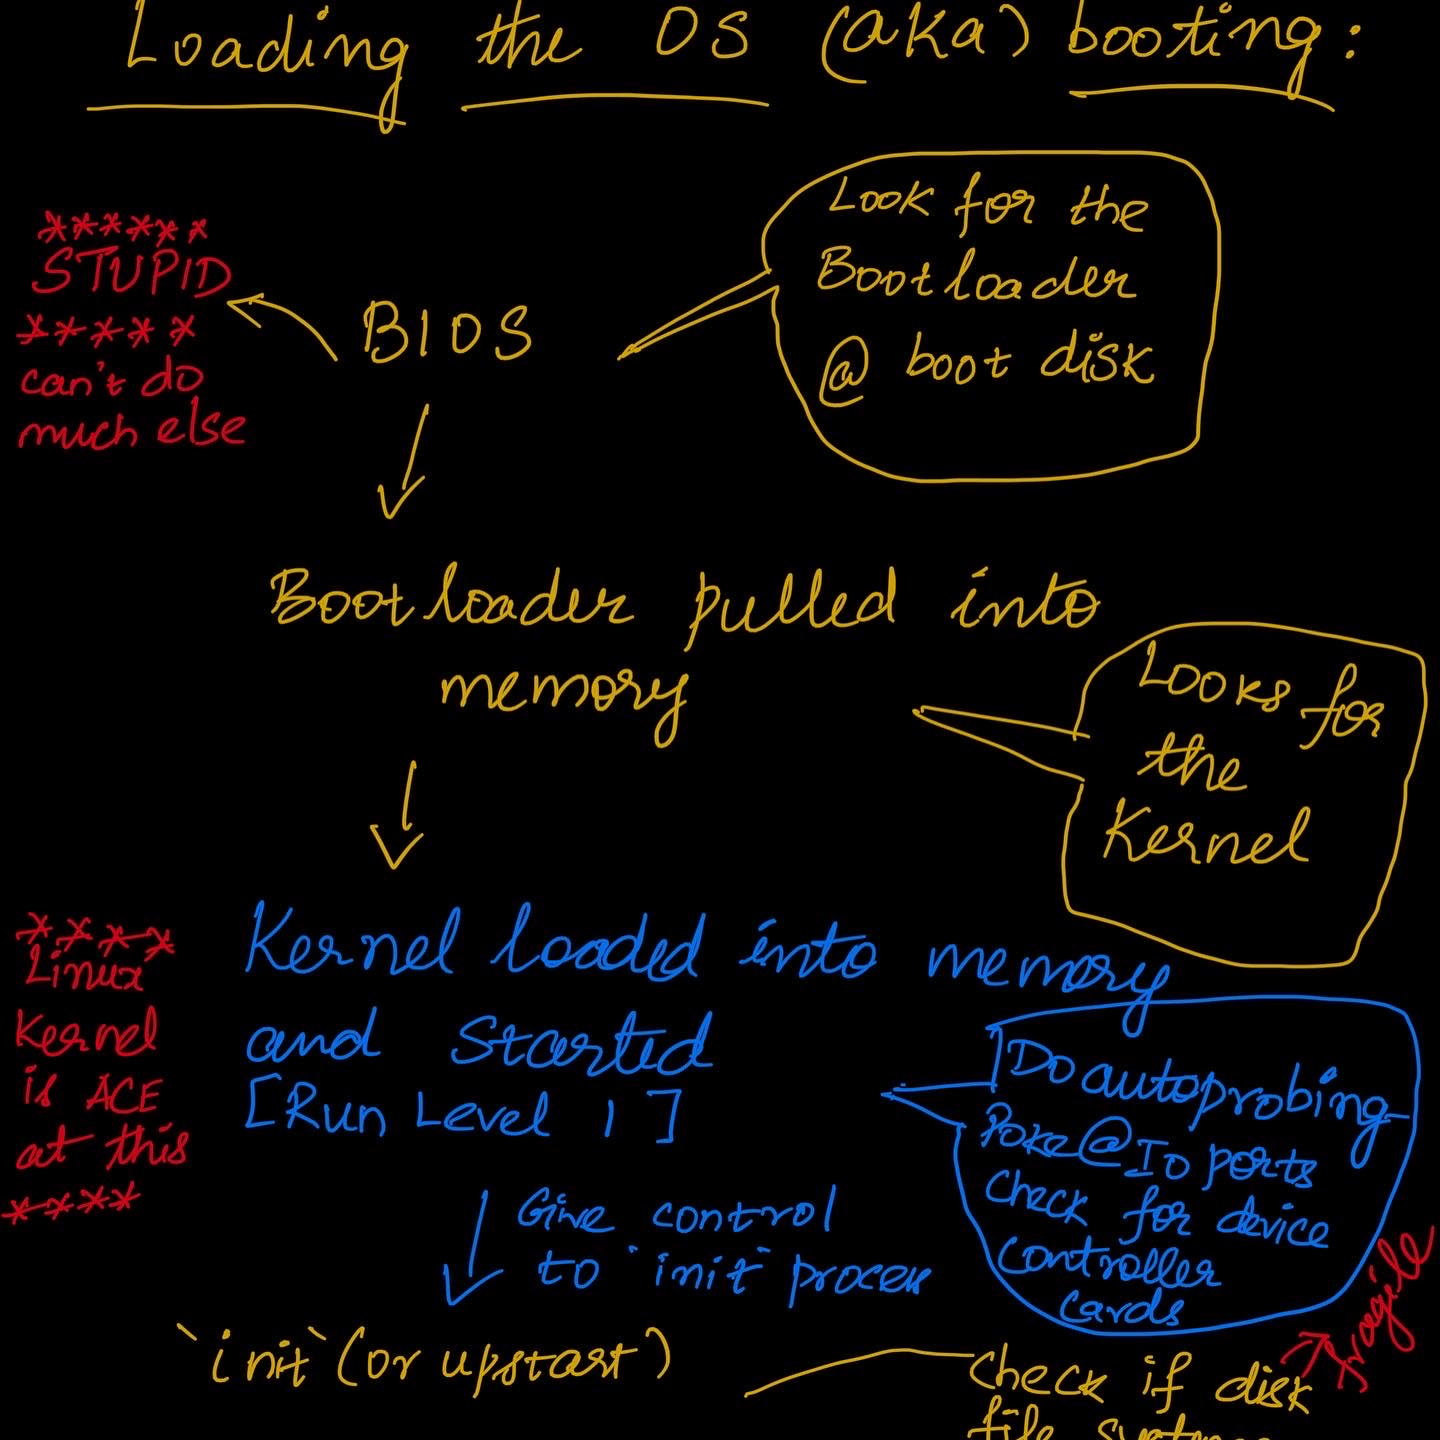 Loading the OS (aka) booting:
Look for the
Bootloader
@ boot disk
******
STUPID
*****
can't do
much else
BIOS
Bootloader pulled into
memory
Looks for
the
Kernel
****
Linux
Kernel
is ACE
at this
****
Kernel loaded into memory
and Started
[Run Level 1]
Do autoprobing
Poke @ IO ports
check for device
controller
cards
Give control
to `init` process
`init` (or upstart)
check if disk
fragile
file systems